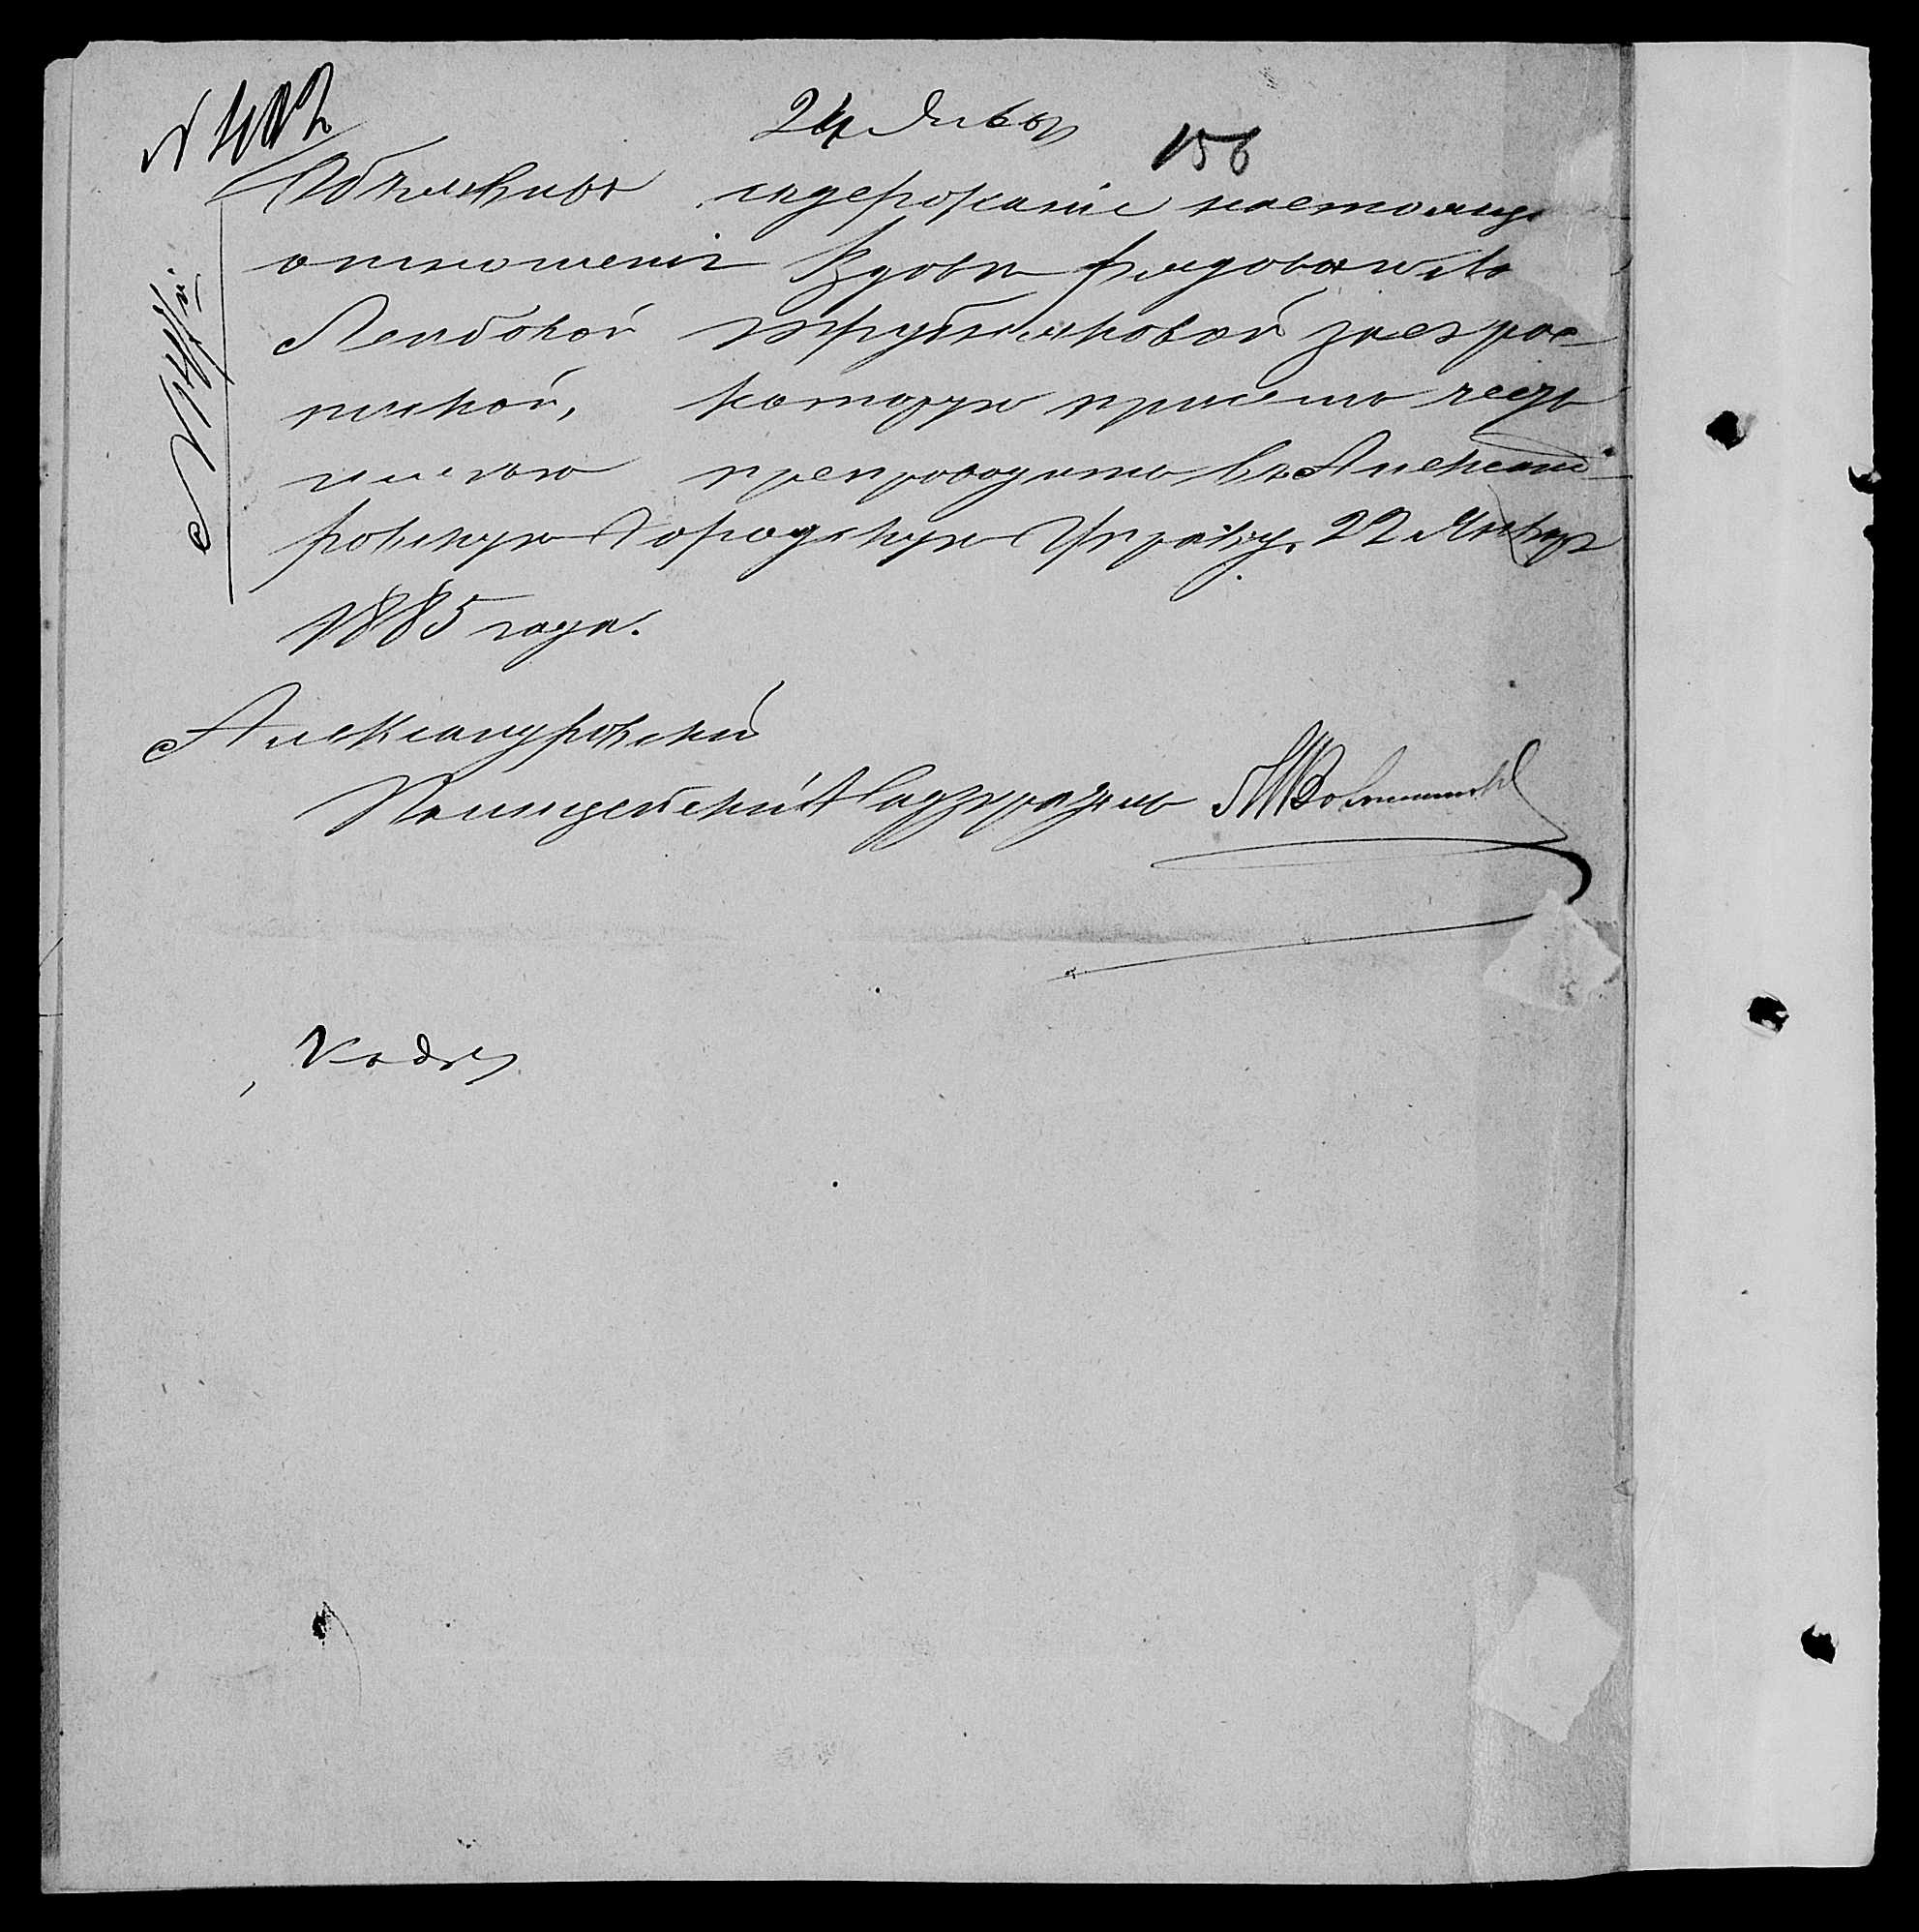 24 Янвъ
156
Объявивъ содержаніе настояще
отношенія Вдовѣ рядоваго
Лейбовой Трубниковой за ея рос-
пиской, которую при семъ честь
имѣю препроводить въ Александ-
ровскую Городскую Управу. 22 Января
1885 года.
Александровскій
Полицейскій Надзиратель
Къ дѣлу